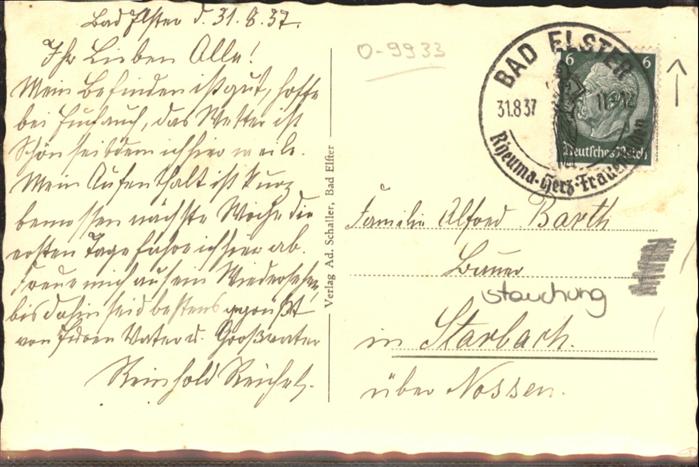 Bad Elster d. 31.8.37.
Ihr Lieben Alle!
Mein Befinden ist gut, hoffe
bei Euch auch, das Wetter ist
schön seitdem ich hier weile.
Mein Aufenthalt ist kurz
bemessen nächste Woche die
ersten Tage fahre ich hier ab.
Freue mich auf ein Wiedersehen,
bis dahin seid bestens gegrüßt
von Vater u. Großvater
Reinhold
O-9933
BAD ELSTER
31.8.37
Rheuma-Herz-Frauen
6 6
Deutsches Reich
Verlag Ad. Schaller, Bad Elster
Familie Alfred Barth
Bauer
stauchung
in Starbach.
über Nossen.